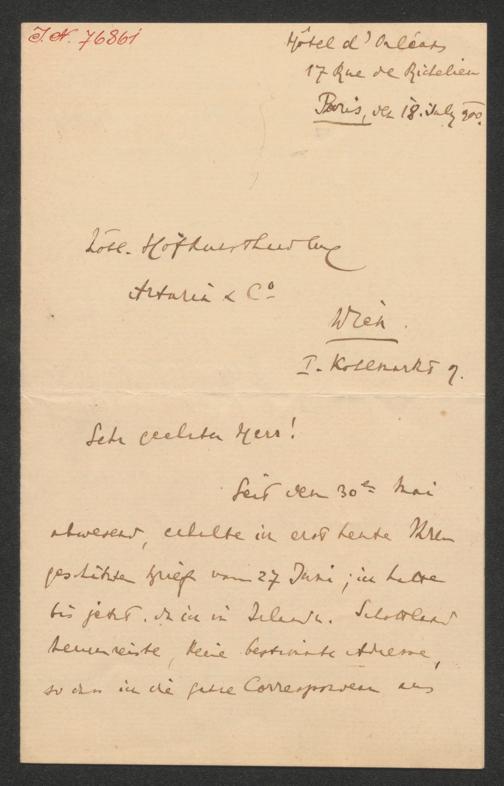 I.N. 76861
Hôtel d'Orléans
17 Rue de Richelieu
Paris, den 18. July 900.
Löbl. Hofkunsthandlung
Artaria & Cº
Wien.
I. Kohlmarkt 9.
Sehr geehrter Herr!
Seit dem 30en Mai
abwesend, erhielte ich erst heute Ihren
geschätzten Brief vom 27 Juni; ich hatte
bis jetzt, da ich in Irland u. Schottland
herumreiste, keine bestimmte Adresse,
so dass ich die ganze Correspondenz aus